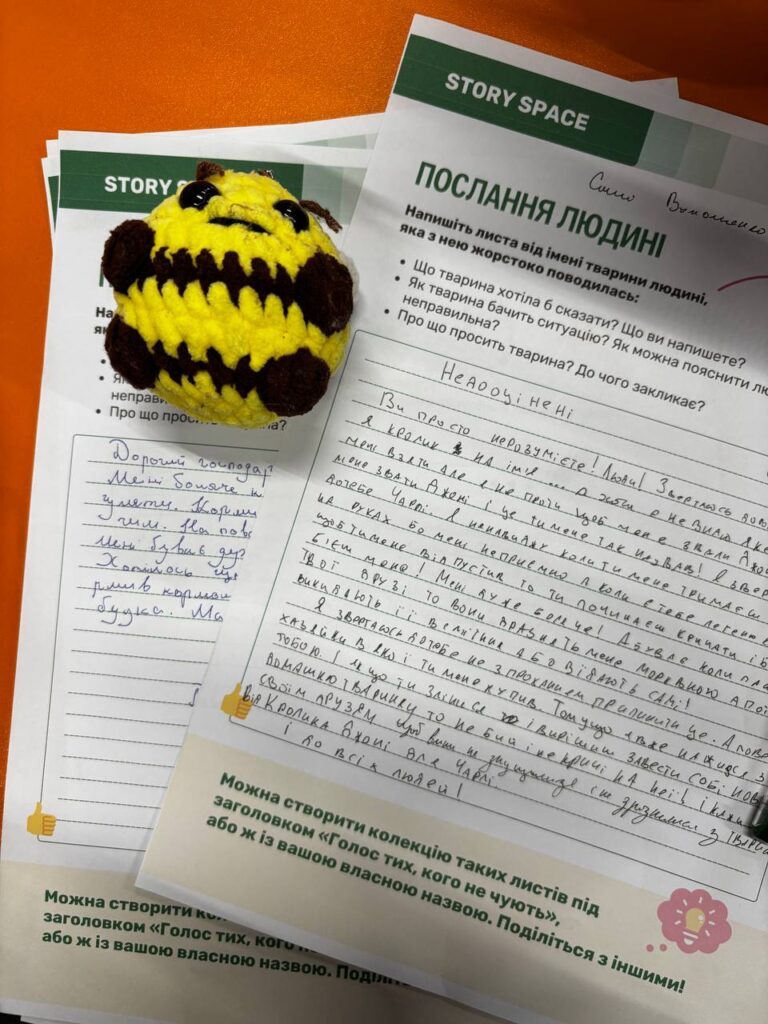 STORY SPACE
ПОСЛАННЯ ЛЮДИНІ
Напишіть листа від імені тварини людині,
яка з нею жорстоко поводилась:
• Що тварина хотіла б сказати? Що ви напишете?
• Як тварина бачить ситуацію? Як можна пояснити лю
неправильна?
• Про що просить тварина? До чого закликає?
Недооцінені
Ви просто нерозумієте! Люди! Звертаюсь до
Я кролик на імя
мені взяти але я не проти щоб мене звали Джо
мене звати Джоні і це ти мене так назвав! Я звер
дотебе Чарлі. Я ненавиджу коли ти мене тримаєш
на руках бо мені неприємно а коли я тебе легенько
щоб ти мене відпустив то ти починаєш кричати і б
бієш мене! Мені дуже боляче! А буває коли
твої друзі то вони дразнять мене морквиною а по
викидають її або з'їдають самі!
Я звертаюсь дотебе не з проханням припинити це. А пове
хазяйки в якої ти мене купив. Тому що я вже
тобою! Якщо ти злишся і вирішиш завести собі нов
домашню тваринку то не бий і не кричи на неї! і кажи
своїм друзям щоб вони не знущалися і не дразнилися з твари
від Кролика Джоні для Чарлі
і до всіх людей!
Можна створити колекцію таких листів під
заголовком «Голос тих, кого не чують»,
або ж із вашою власною назвою. Поділіться з іншими!
STORY S
На
як
• Як
неправи
• Про що просить тварина?
Дорогий господар
Мені боляче
гуляти. Корми
чим. На пов
Мені буває
Хотілось ще
рмив кормом
будка. Ма
Можна створити ко
заголовком «Голос тих, кого н
або ж із вашою власною назвою. Поділіт